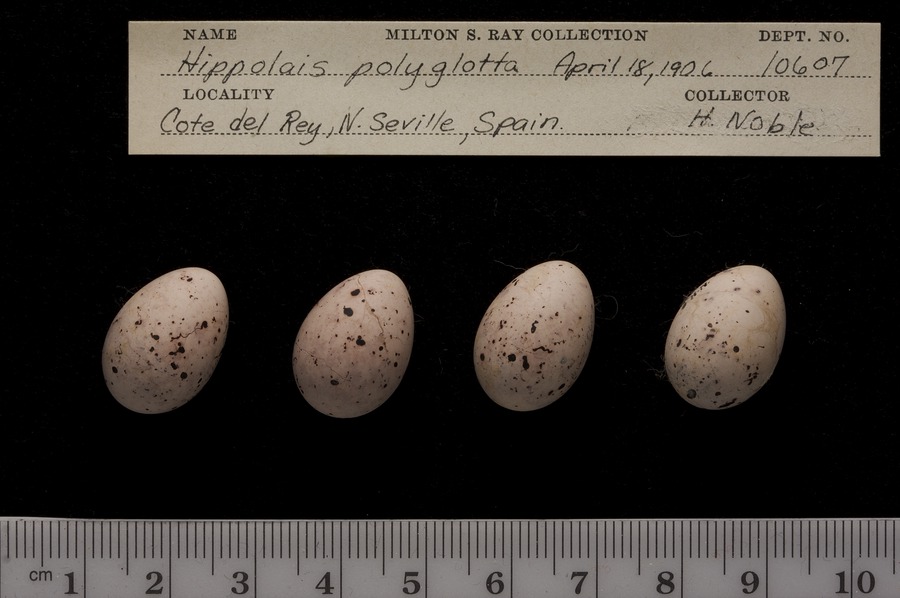 NAME MILTON S. RAY COLLECTION DEPT. NO.
Hippolais polyglotta April 18, 1906 10607
LOCALITY COLLECTOR
Cote del Rey, N. Seville, Spain. H. Noble
cm 1 2 3 4 5 6 7 8 9 10